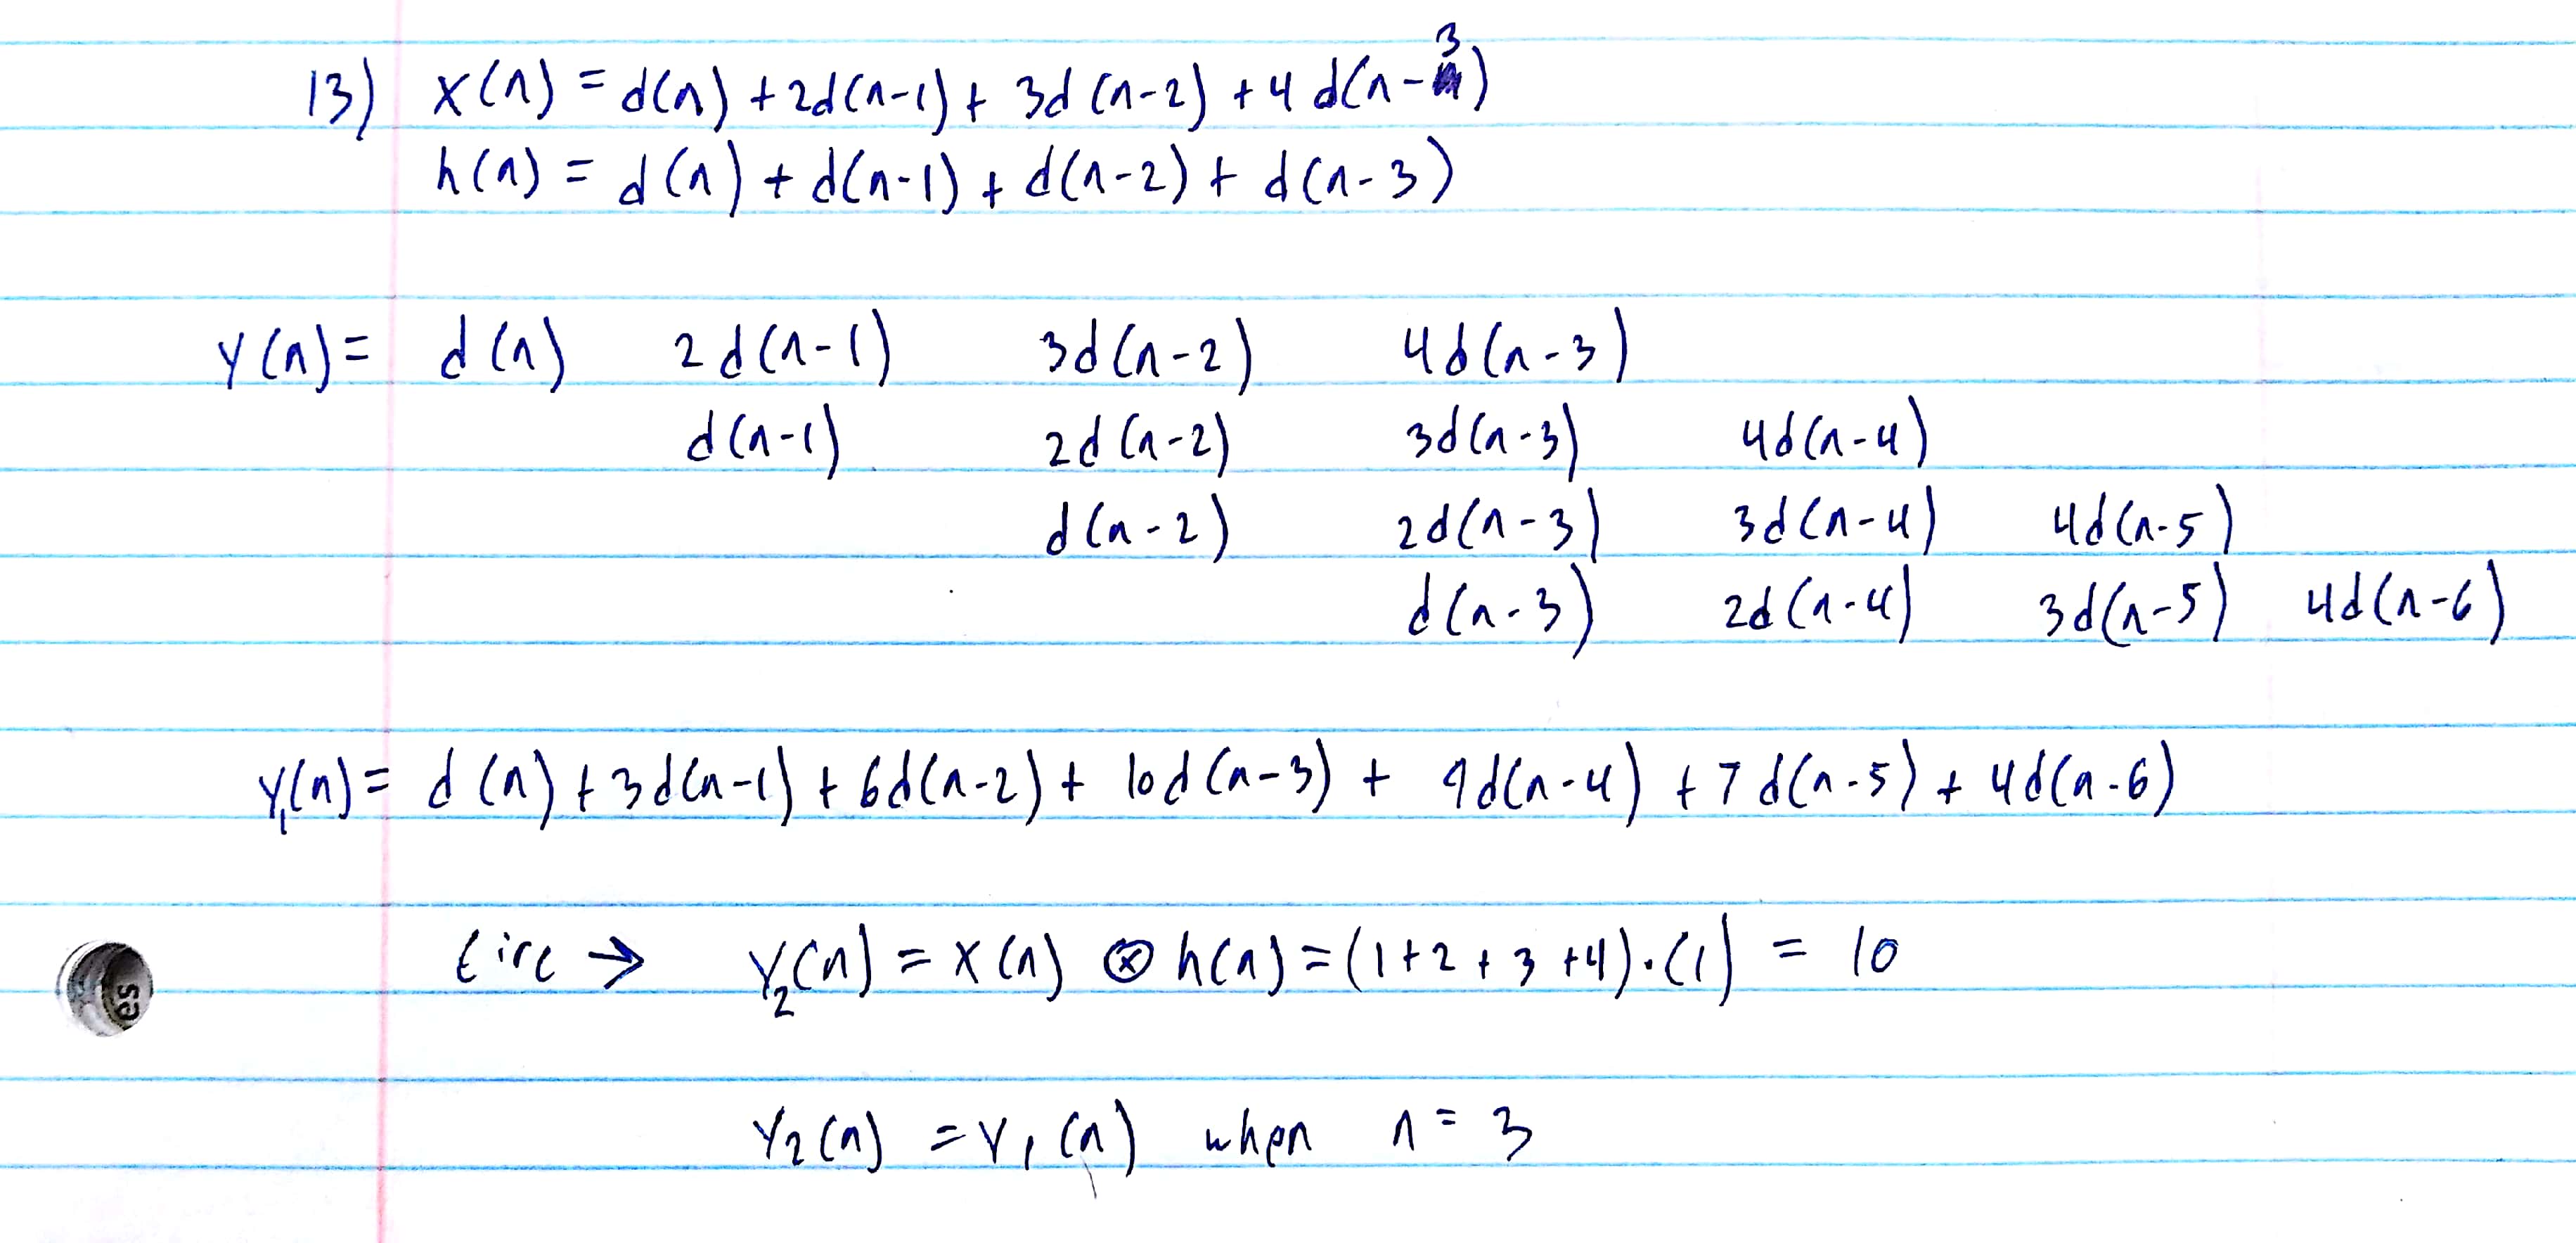 13) x(n) = d(n) + 2d(n-1) + 3d(n-2) + 4d(n-3)
h(n) = d(n) + d(n-1) + d(n-2) + d(n-3)
y(n) = d(n) 2d(n-1) 3d(n-2) 4d(n-3)
d(n-1) 2d(n-2) 3d(n-3) 4d(n-4)
d(n-2) 2d(n-3) 3d(n-4) 4d(n-5)
d(n-3) 2d(n-4) 3d(n-5) 4d(n-6)
y₁(n) = d(n) + 3d(n-1) + 6d(n-2) + 10d(n-3) + 9d(n-4) + 7d(n-5) + 4d(n-6)
circ → y₂(n) = x(n) ⊗ h(n) = (1+2+3+4)·(1) = 10
y₂(n) = y₁(n) when n = 3
es